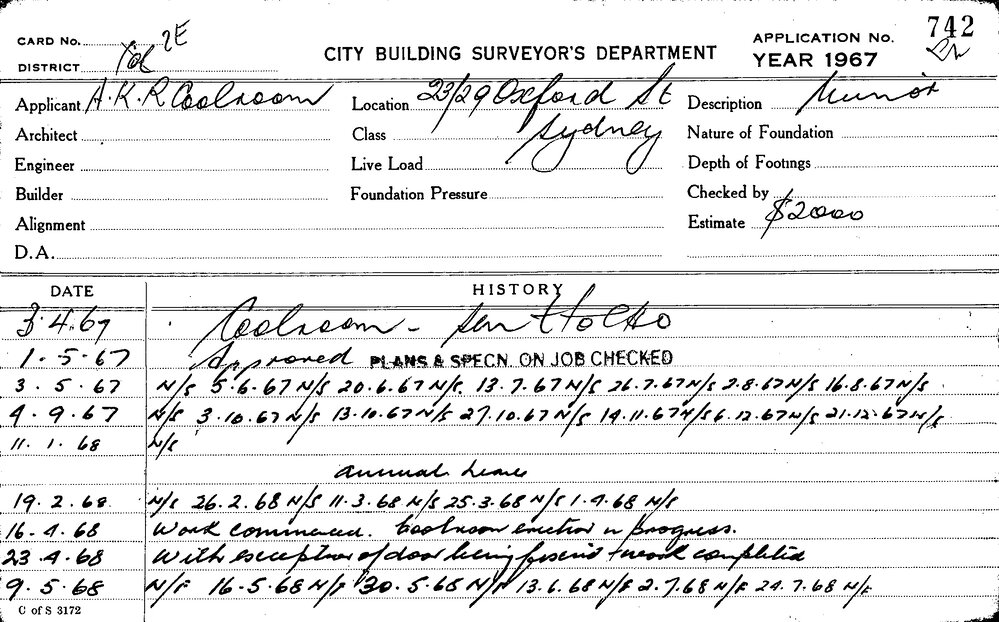 742
CARD No. 2E
DISTRICT
CITY BUILDING SURVEYOR'S DEPARTMENT
APPLICATION No.
YEAR 1967
Applicant A.K.R Coolroom
Location 23/29 Oxford St
Sydney
Description Minor
Architect
Class
Nature of Foundation
Engineer
Live Load
Depth of Footings
Builder
Foundation Pressure
Checked by
Alignment
Estimate $2000
D.A.
DATE HISTORY
3.4.67 Coolroom -
1.5.67 Approved PLANS & SPECN. ON JOB CHECKED
3.5.67 N/S 5.6.67 N/S 20.6.67 N/S. 13.7.67 N/S 26.7.67 N/S 2.8.67 N/S 16.8.67 N/S.
4.9.67 N/S 3.10.67 N/S 13.10.67 N/S 27.10.67 N/S 14.11.67 N/S 6.12.67 N/S 21.12.67 N/S
11.1.68 N/S
Annual Leave
19.2.68 N/S 26.2.68 N/S 11.3.68 N/S 25.3.68 N/S 1.4.68 N/S
16.4.68 Work commenced. Coolroom erection in progress.
23.4.68 With exception of door being work completed
9.5.68 N/F 16.5.68 N/F 30.5.68 N/F 13.6.68 N/F 2.7.68 N/F 24.7.68 N/F
C of S 3172